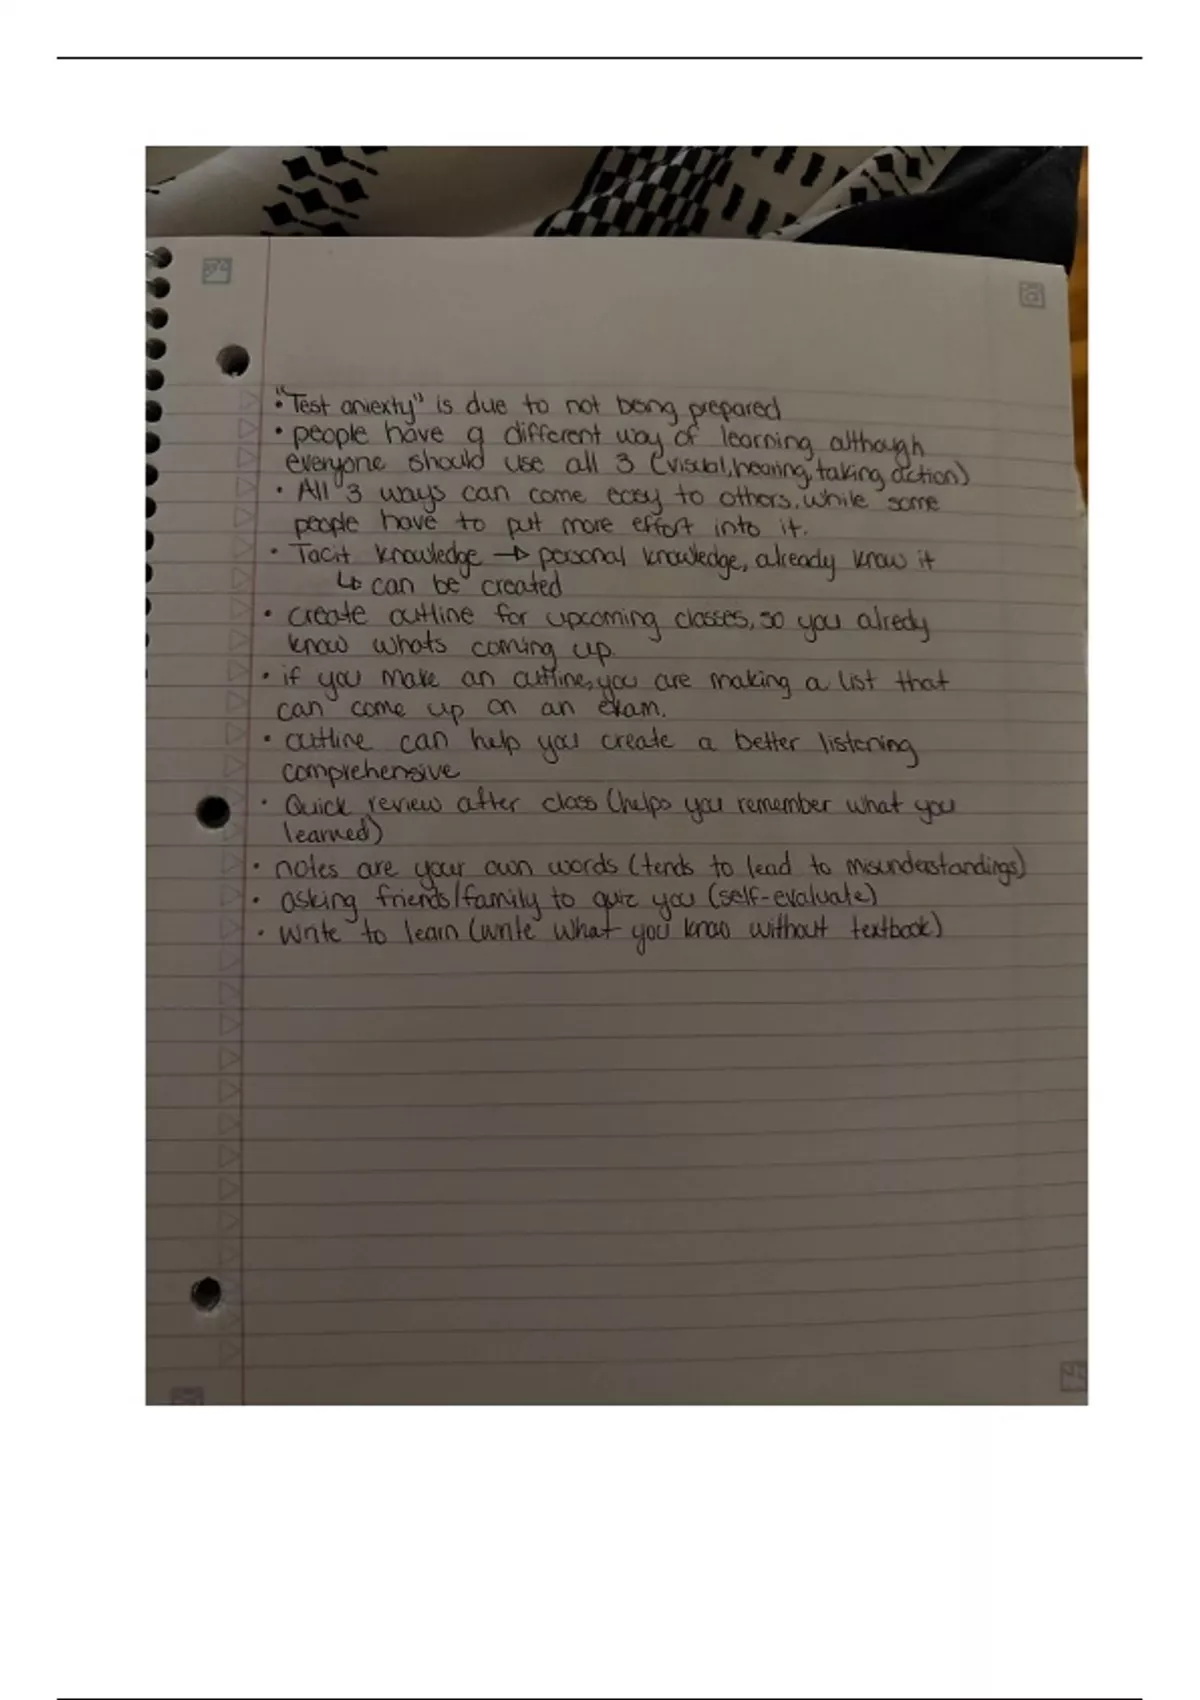 • "Test aniexty" is due to not being prepared
• people have a different way of learning although
everyone should use all 3 (visual, hearing, taking action)
• All 3 ways can come easy to others. While some
people have to put more effort into it.
• Tacit knowledge → personal knowledge, already know it
↳ can be created
• create outline for upcoming classes, so you alredy
know whats coming up.
• if you make an outline, you are making a list that
can come up on an exam.
• outline can help you create a better listening
comprehensive
• Quick review after class (helps you remember what you
learned)
• notes are your own words (tends to lead to misunderstandings)
• asking friends/family to quiz you (self-evaluate)
• Write to learn (write what you know without textbook)